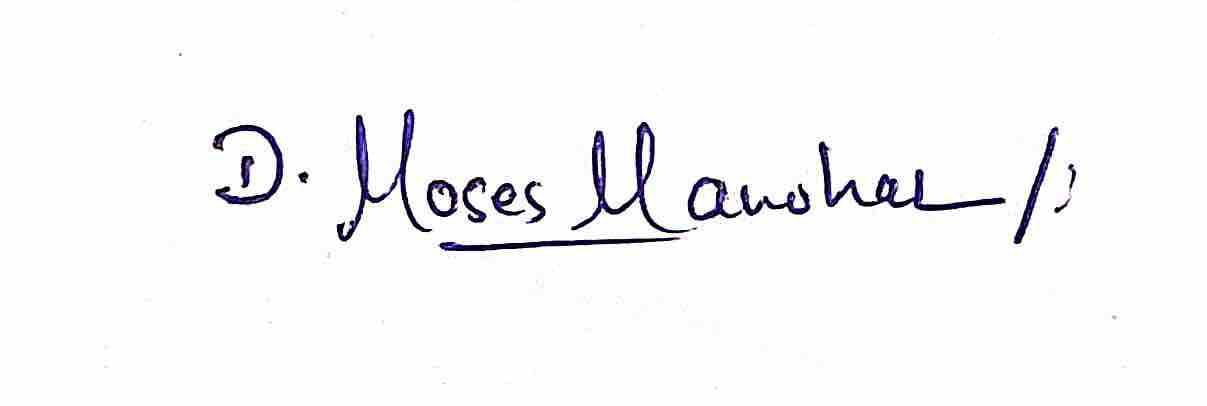 D. Moses Manohar